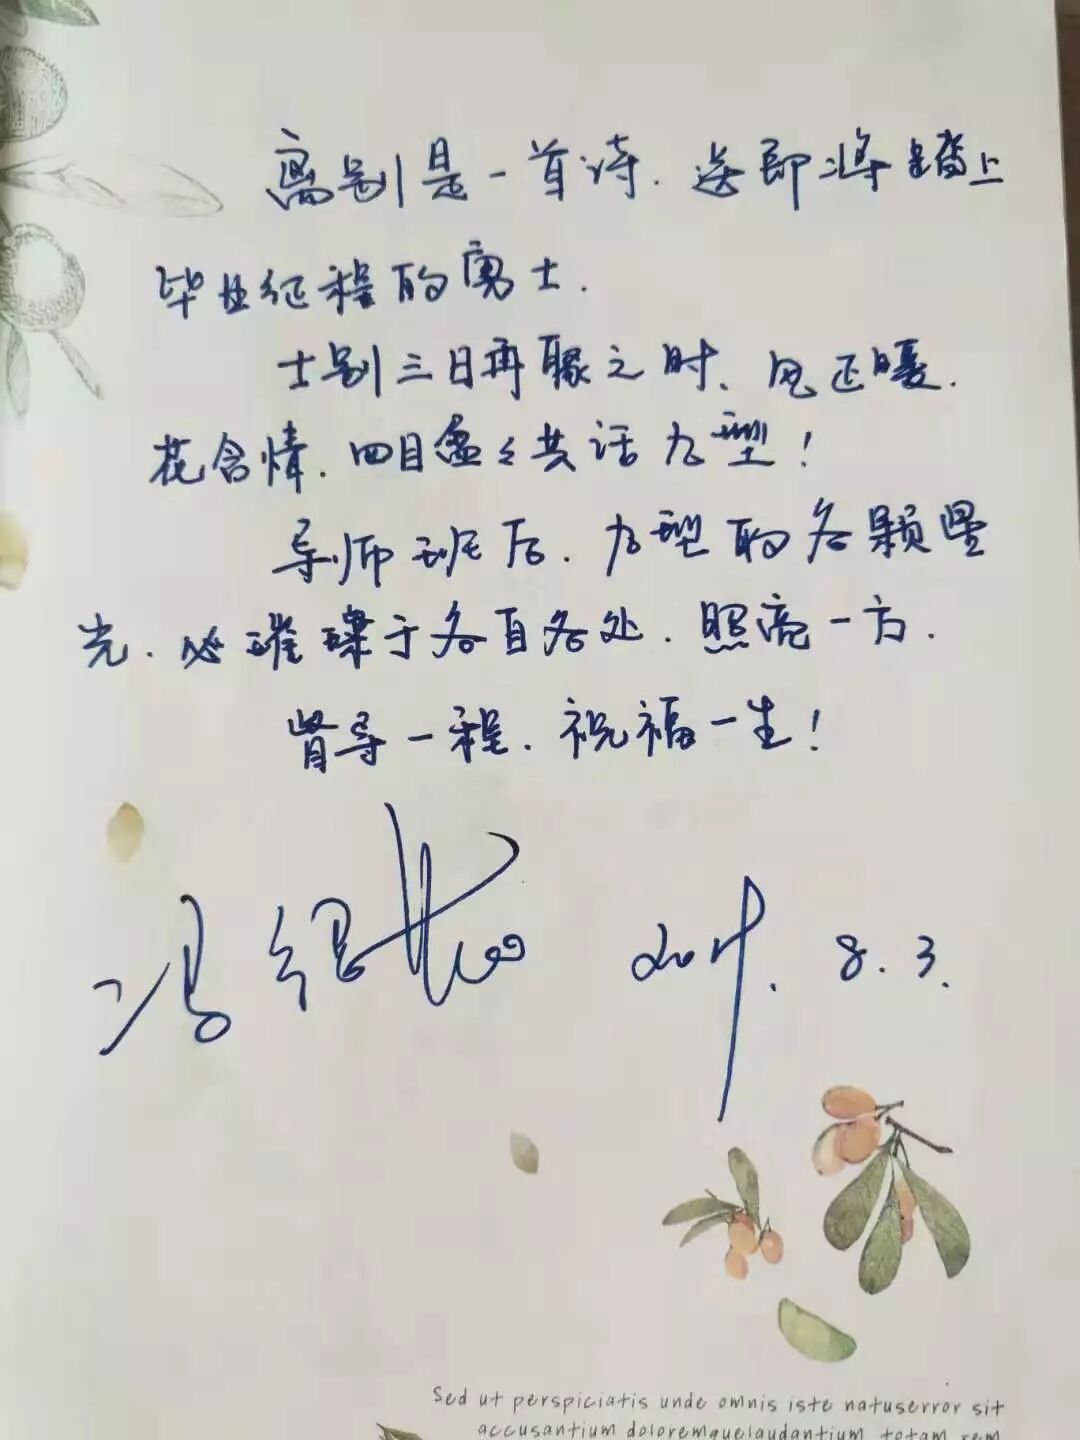 离别是一首诗.送即将踏上
毕业征程的勇士.
士别三日再聚之时、风正暖.
花含情.四目盈盈共话九型!
导师班后.九型的各颗星
光.必璀璨于各自各处.照亮一方.
督导一程.祝福一生!
冯 2019.8.3.
Sed ut perspiciatis unde omnis iste natuserror sit
accusantium doloremquelaudantium, totam rem